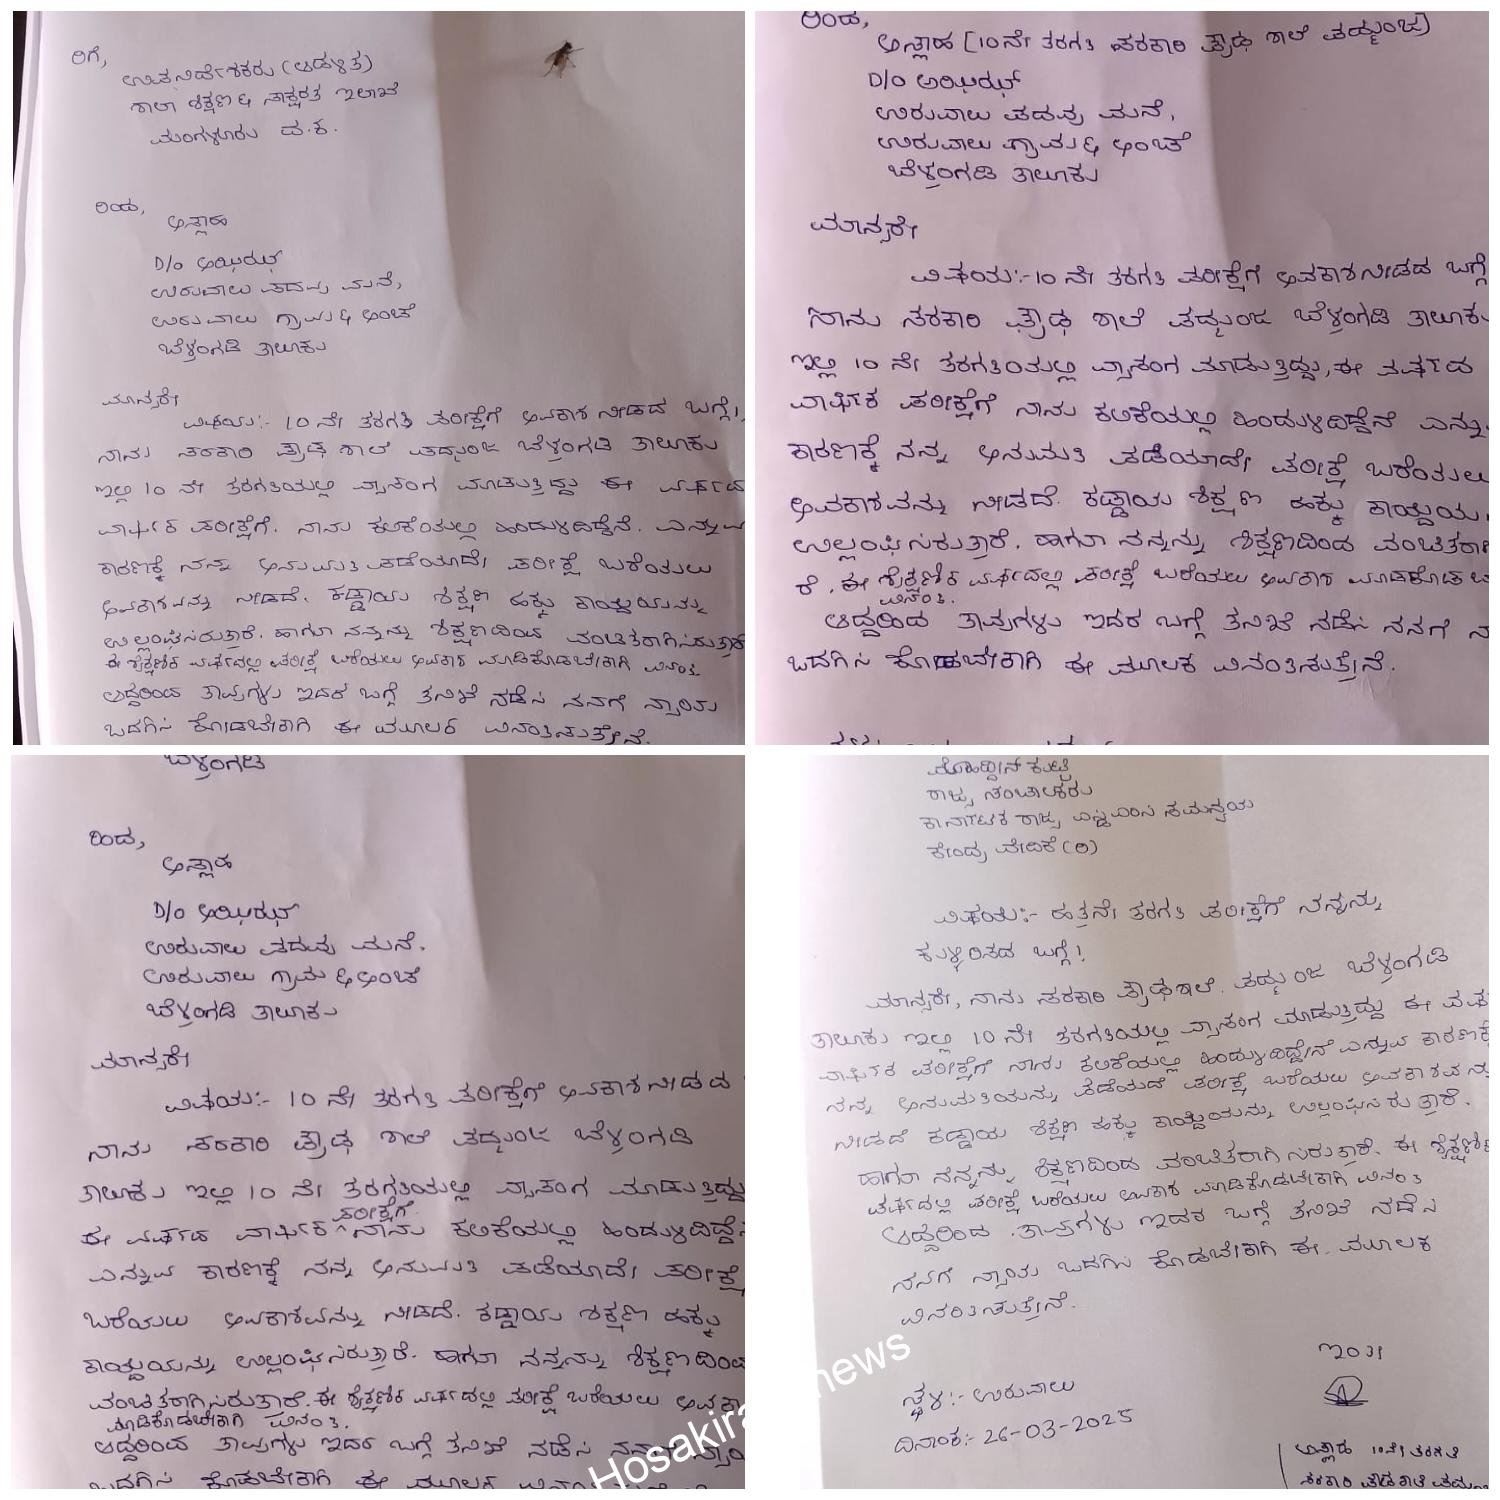 ರಿಗೆ,
ಉಪನಿರ್ದೇಶಕರು (ಆಡಳಿತ)
ಶಾಲಾ ಶಿಕ್ಷಣ & ಸಾಕ್ಷರತ ಇಲಾಖೆ
ಮಂಗಳೂರು ದ.ಕ.
ರಿಂದ,
D/O
ಉರುವಾಲು ಪದವು ಮನೆ,
ಉರುವಾಲು ಗ್ರಾಮ & ಅಂಚೆ
ಬೆಳ್ತಂಗಡಿ ತಾಲೂಕು
ಮಾನ್ಯರೇ
ವಿಷಯ:- 10 ನೇ ತರಗತಿ ಪರೀಕ್ಷೆಗೆ ಅವಕಾಶ ನೀಡದ ಬಗ್ಗೆ!
ನಾನು ಸರಕಾರಿ ಪ್ರೌಢ ಶಾಲೆ ಪದ್ಮುಂಜ ಬೆಳ್ತಂಗಡಿ ತಾಲೂಕು
ಇಲ್ಲಿ 10 ನೇ ತರಗತಿಯಲ್ಲಿ ವ್ಯಾಸಂಗ ಮಾಡುತ್ತಿದ್ದು ಈ ವರ್ಷದ
ವಾರ್ಷಿಕ ಪರೀಕ್ಷೆಗೆ. ನಾನು ಕಲಿಕೆಯಲ್ಲಿ ಹಿಂದುಳಿದಿದ್ದೆನೆ. ಎನ್ನುವ
ಕಾರಣಕ್ಕೆ ನನ್ನ ಅನುಮತಿ ಪಡೆಯಾದೇ ಪರೀಕ್ಷೆ ಬರೆಯಲು
ಅವಕಾಶವನ್ನು ನೀಡದೆ. ಕಡ್ಡಾಯ ಶಿಕ್ಷಣ ಹಕ್ಕು ಕಾಯ್ದೆಯನ್ನು
ಉಲ್ಲಂಘಿಸಿರುತ್ತಾರೆ. ಹಾಗೂ ನನ್ನನ್ನು ಶಿಕ್ಷಣದಿಂದ ವಂಚಿತರಾಗಿಸಿರುತ್ತಾರೆ
ಈ ಶೈಕ್ಷಣಿಕ ವರ್ಷದಲ್ಲಿ ಪರೀಕ್ಷೆ ಬರೆಯಲು ಅವಕಾಶ ಮಾಡಿಕೊಡಬೇಕಾಗಿ ವಿನಂತಿ
ಆದ್ದರಿಂದ ತಾವುಗಳು ಇದರ ಬಗ್ಗೆ ತನಿಖೆ ನಡೆಸಿ ನನಗೆ ನ್ಯಾಯ
ಒದಗಿಸಿ ಕೊಡಬೇಕಾಗಿ ಈ ಮೂಲಕ ವಿನಂತಿಸುತ್ತೇನೆ.
ರಿಂದ,
[10ನೇ ತರಗತಿ ಸರಕಾರಿ ಪ್ರೌಢ ಶಾಲೆ ಪದ್ಮುಂಜ]
D/O
ಉರುವಾಲು ಪದವು ಮನೆ,
ಉರುವಾಲು ಗ್ರಾಮ & ಅಂಚೆ
ಬೆಳ್ತಂಗಡಿ ತಾಲೂಕು
ಮಾನ್ಯರೇ
ವಿಷಯ:- 10 ನೇ ತರಗತಿ ಪರೀಕ್ಷೆಗೆ ಅವಕಾಶ ನೀಡದ ಬಗ್ಗೆ
ನಾನು ಸರಕಾರಿ ಪ್ರೌಢ ಶಾಲೆ ಪದ್ಮುಂಜ ಬೆಳ್ತಂಗಡಿ ತಾಲೂಕು
ಇಲ್ಲಿ 10 ನೇ ತರಗತಿಯಲ್ಲಿ ವ್ಯಾಸಂಗ ಮಾಡುತ್ತಿದ್ದು, ಈ ವರ್ಷದ
ವಾರ್ಷಿಕ ಪರೀಕ್ಷೆಗೆ ನಾನು ಕಲಿಕೆಯಲ್ಲಿ ಹಿಂದುಳಿದಿದ್ದೆನೆ ಎನ್ನು
ಕಾರಣಕ್ಕೆ ನನ್ನ ಅನುಮತಿ ಪಡೆಯಾದೇ ಪರೀಕ್ಷೆ ಬರೆಯಲು
ಅವಕಾಶವನ್ನು ನೀಡದೆ. ಕಡ್ಡಾಯ ಶಿಕ್ಷಣ ಹಕ್ಕು ಕಾಯ್ದೆಯ
ಉಲ್ಲಂಘಿಸಿರುತ್ತಾರೆ. ಹಾಗೂ ನನ್ನನ್ನು ಶಿಕ್ಷಣದಿಂದ ವಂಚಿತರಾಗಿ
ರೆ. ಈ ಶೈಕ್ಷಣಿಕ ವರ್ಷದಲ್ಲಿ ಪರೀಕ್ಷೆ ಬರೆಯಲು ಅವಕಾಶ ಮಾಡಿಕೊಡಬೇ
ವಿನಂತಿ.
ಆದ್ದರಿಂದ ತಾವುಗಳು ಇದರ ಬಗ್ಗೆ ತನಿಖೆ ನಡೆಸಿ ನನಗೆ ನ್ಯಾ
ಒದಗಿಸಿ ಕೊಡಬೇಕಾಗಿ ಈ ಮೂಲಕ ವಿನಂತಿಸುತ್ತೇನೆ.
ಬೆಳ್ತಂಗಡಿ
ರಿಂದ,
D/O
ಉರುವಾಲು ಪದವು ಮನೆ.
ಉರುವಾಲು ಗ್ರಾಮ & ಅಂಚೆ
ಬೆಳ್ತಂಗಡಿ ತಾಲೂಕು
ಮಾನ್ಯರೇ
ವಿಷಯ:- 10 ನೇ ತರಗತಿ ಪರೀಕ್ಷೆಗೆ ಅವಕಾಶ ನೀಡದ
ನಾನು ಸರಕಾರಿ ಪ್ರೌಢ ಶಾಲೆ ಪದ್ಮುಂಜ ಬೆಳ್ತಂಗಡಿ
ತಾಲೂಕು ಇಲ್ಲಿ 10 ನೇ ತರಗತಿಯಲ್ಲಿ ವ್ಯಾಸಂಗ ಮಾಡುತ್ತಿದ್ದು
ಈ ವರ್ಷದ ವಾರ್ಷಿಕ ^ಪರೀಕ್ಷೆಗೆ ನಾನು ಕಲಿಕೆಯಲ್ಲಿ ಹಿಂದುಳಿದಿದ್ದೆ
ಎನ್ನುವ ಕಾರಣಕ್ಕೆ ನನ್ನ ಅನುಮತಿ ಪಡೆಯಾದೇ ಪರೀಕ್ಷೆ
ಬರೆಯಲು ಅವಕಾಶವನ್ನು ನೀಡದೆ. ಕಡ್ಡಾಯ ಶಿಕ್ಷಣ ಹಕ್ಕು
ಕಾಯ್ದೆಯನ್ನು ಉಲ್ಲಂಘಿಸಿರುತ್ತಾರೆ. ಹಾಗೂ ನನ್ನನ್ನು ಶಿಕ್ಷಣದಿಂದ
ವಂಚಿತರಾಗಿಸಿರುತ್ತಾರೆ. ಈ ಶೈಕ್ಷಣಿಕ ವರ್ಷದಲ್ಲಿ ಪರೀಕ್ಷೆ ಬರೆಯಲು ಅವಕಾ
ಮಾಡಿಕೊಡಬೇಕಾಗಿ ವಿನಂತಿ.
ಆದ್ದರಿಂದ ತಾವುಗಳು ಇದರ ಬಗ್ಗೆ ತನಿಖೆ ನಡೆಸಿ ನನಗೆ ನ್ಯಾಯ
ಒದಗಿಸಿ ಕೊಡಬೇಕಾಗಿ ಈ ಮೂಲಕ
ಮೊಹಿದ್ದೀನ್ ಕುಟ್ಟಿ
ರಾಜ್ಯ ಸಂಚಾಲಕರು
ಕರ್ನಾಟಕ ರಾಜ್ಯ ಎಸ್ಡಿಎಂಸಿ ಸಮನ್ವಯ
ಕೇಂದ್ರ ವೇದಿಕೆ (ರಿ)
ವಿಷಯ:- ಹತ್ತನೇ ತರಗತಿ ಪರೀಕ್ಷೆಗೆ ನನ್ನನ್ನು
ಕುಳ್ಳಿರಿಸದ ಬಗ್ಗೆ!
ಮಾನ್ಯರೇ, ನಾನು ಸರಕಾರಿ ಪ್ರೌಢಶಾಲೆ. ಪದ್ಮುಂಜ ಬೆಳ್ತಂಗಡಿ
ತಾಲೂಕು ಇಲ್ಲಿ 10 ನೇ ತರಗತಿಯಲ್ಲಿ ವ್ಯಾಸಂಗ ಮಾಡುತ್ತಿದ್ದು ಈ ವರ್ಷ
ವಾರ್ಷಿಕ ಪರೀಕ್ಷೆಗೆ ನಾನು ಕಲಿಕೆಯಲ್ಲಿ ಹಿಂದುಳಿದಿದ್ದೇನೆ ಎನ್ನುವ ಕಾರಣಕ್ಕೆ
ನನ್ನ ಅನುಮತಿಯನ್ನು ಪಡೆಯದೆ ಪರೀಕ್ಷೆ ಬರೆಯಲು ಅವಕಾಶವನ್ನು
ನೀಡದೆ ಕಡ್ಡಾಯ ಶಿಕ್ಷಣ ಹಕ್ಕು ಕಾಯ್ದೆಯನ್ನು ಉಲ್ಲಂಘಿಸಿರುತ್ತಾರೆ.
ಹಾಗೂ ನನ್ನನ್ನು ಶಿಕ್ಷಣದಿಂದ ವಂಚಿತರಾಗಿಸಿರುತ್ತಾರೆ. ಈ ಶೈಕ್ಷಣಿಕ
ವರ್ಷದಲ್ಲಿ ಪರೀಕ್ಷೆ ಬರೆಯಲು ಅವಕಾಶ ಮಾಡಿಕೊಡಬೇಕಾಗಿ ವಿನಂತಿ
ಆದ್ದರಿಂದ. ತಾವುಗಳು ಇದರ ಬಗ್ಗೆ ತನಿಖೆ ನಡೆಸಿ
ನನಗೆ ನ್ಯಾಯ ಒದಗಿಸಿ ಕೊಡಬೇಕಾಗಿ ಈ. ಮೂಲಕ
ವಿನಂತಿಸುತ್ತೇನೆ.
ಇಂತಿ
ಸ್ಥಳ:- ಉರುವಾಲು
ದಿನಾಂಕ:- 26-03-2025
10ನೇ ತರಗತಿ
ಸರಕಾರಿ ಪ್ರೌಢ ಶಾಲೆ
Hosakira
news